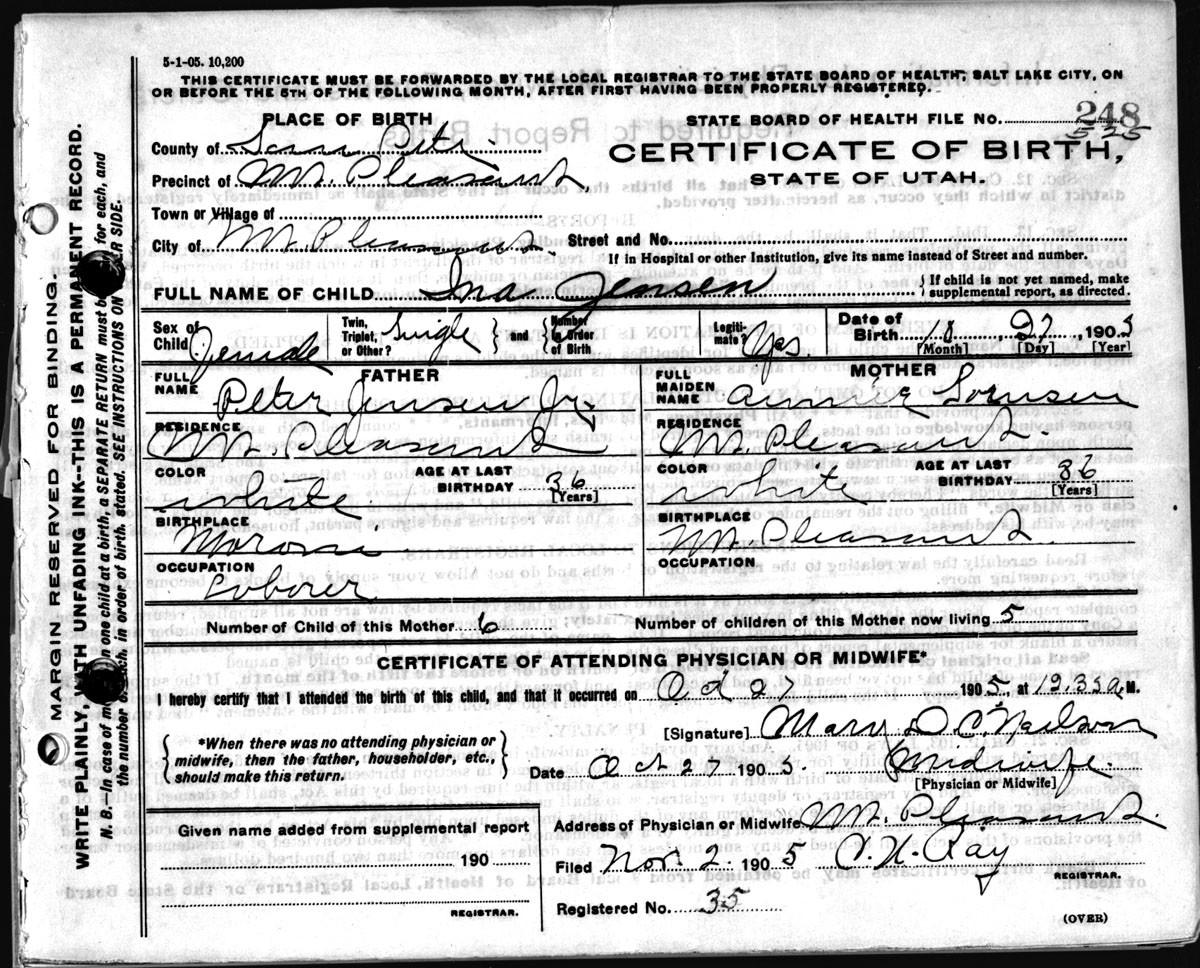 5-1-05. 10,200
THIS CERTIFICATE MUST BE FORWARDED BY THE LOCAL REGISTRAR TO THE STATE BOARD OF HEALTH, SALT LAKE CITY, ON
OR BEFORE THE 5TH OF THE FOLLOWING MONTH, AFTER FIRST HAVING BEEN PROPERLY REGISTERED.
PLACE OF BIRTH
STATE BOARD OF HEALTH FILE NO. 248
525
County of San Pete
CERTIFICATE OF BIRTH,
Precinct of Mt. Pleasant
STATE OF UTAH.
Town or Village of
City of Mt Pleasant Street and No.
If in Hospital or other Institution, give its name instead of Street and number.
FULL NAME OF CHILD Ina Jensen { If child is not yet named, make
supplemental report, as directed.
Sex of Child Female Twin, Triplet, or Other? Single } and { Number in Order of Birth Legitimate? Yes Date of Birth 10 27, 1905
[Month] [Day] [Year]
FATHER
FULL NAME Peter Jensen Jr.
RESIDENCE
Mt. Pleasant
COLOR AGE AT LAST BIRTHDAY 36
white [Years]
BIRTHPLACE
Moroni
OCCUPATION
Laborer
MOTHER
FULL MAIDEN NAME Annnie
RESIDENCE
Mt. Pleasant.
COLOR AGE AT LAST BIRTHDAY 36
white [Years]
BIRTHPLACE
Mt. Pleasant.
OCCUPATION
Number of Child of this Mother 6 Number of children of this Mother now living 5
CERTIFICATE OF ATTENDING PHYSICIAN OR MIDWIFE*
I hereby certify that I attended the birth of this child, and that it occurred on Oct 27 1905, at 12.35 a M.
{ *When there was no attending physician or
midwife, then the father, householder, etc.,
should make this return. }
[Signature] Mary D C Neilson
Date Oct 27 1905. Midwife
[Physician or Midwife]
Given name added from supplemental report
190
REGISTRAR.
Address of Physician or Midwife Mt. Pleasant.
Filed Nov. 2. 1905 C. N. Ray
REGISTRAR.
Registered No. 35
(OVER)
MARGIN RESERVED FOR BINDING.
WRITE PLAINLY, WITH UNFADING INK--THIS IS A PERMANENT RECORD.
N. B.--In case of more than one child at a birth, a SEPARATE RETURN must be for each, and
the number of each, in order of birth, stated. SEE INSTRUCTIONS ON SIDE.